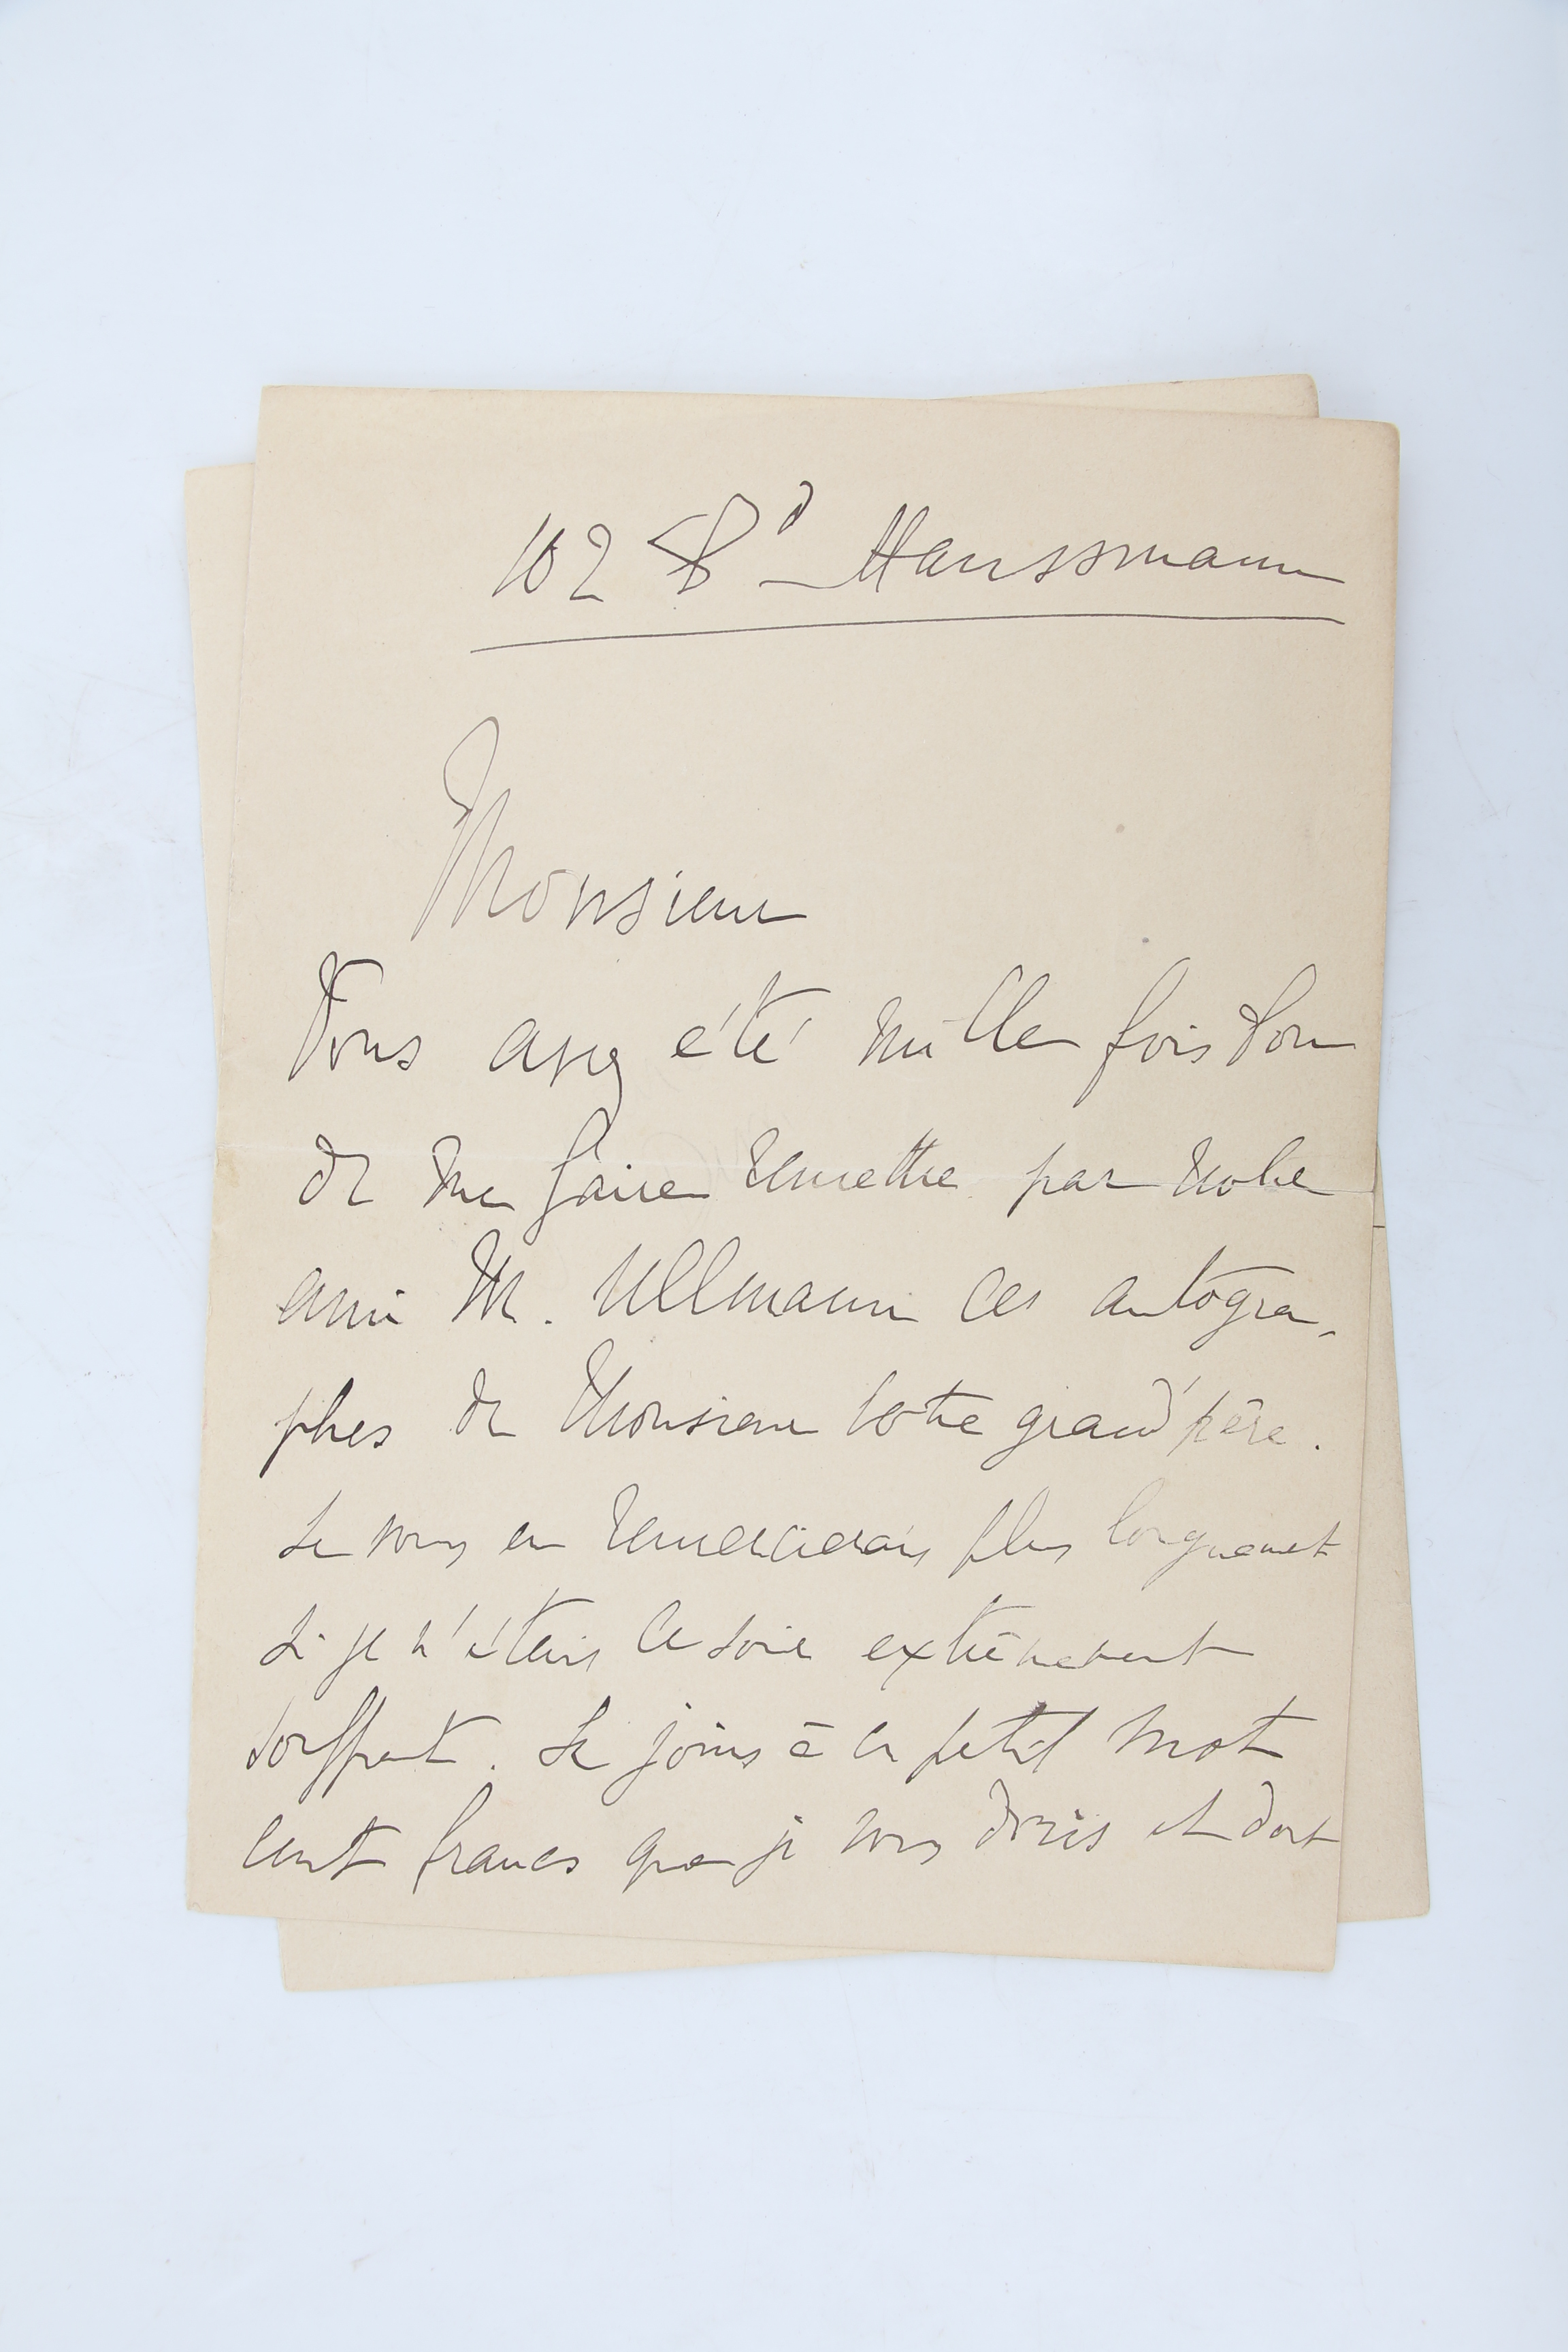 102 Bd Haussmann
Monsieur
Vous avez été mille fois bon
de me faire remettre par notre
ami M. Ullmann ces autogra-
phes de Monsieur votre grand'père.
Je vous en remercierais plus longuement
si je n'étais ce soir extrêmement
souffrant. Je joins à ce petit mot
cent francs que je vous dois et dont